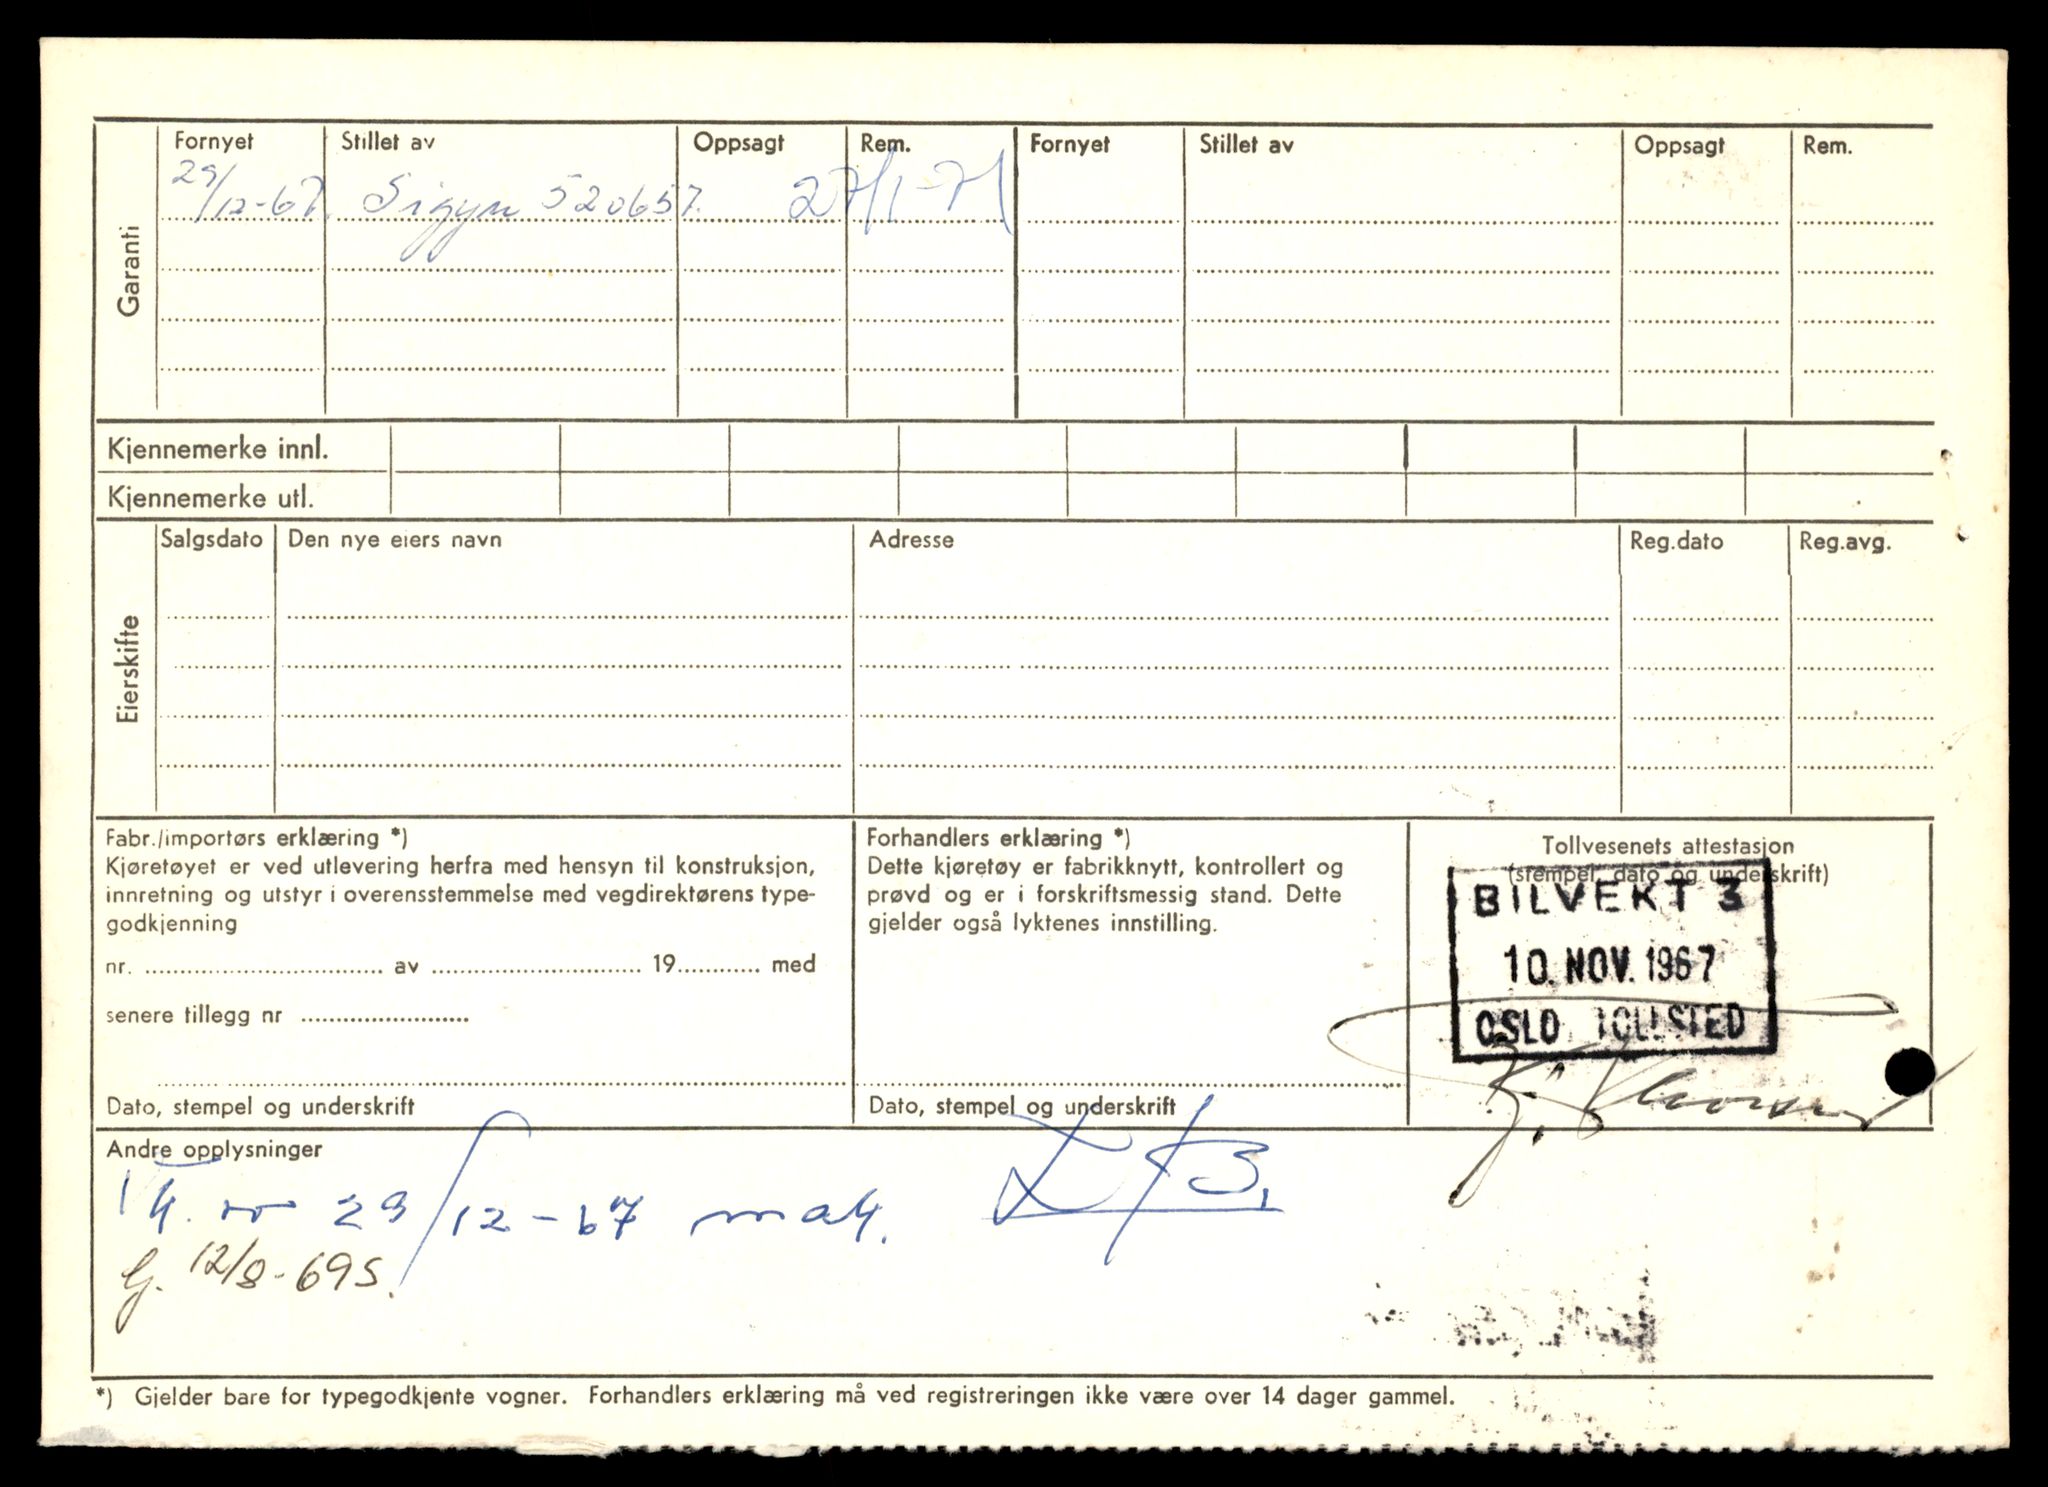 Garanti
Fornyet Stillet av Oppsagt Rem. Fornyet Stillet av Oppsagt Rem.
29/12-67. Sigyn 520657. 27/1-71
Kjennemerke innl.
Kjennemerke utl.
Eierskifte
Salgsdato Den nye eiers navn Adresse Reg.dato Reg.avg.
Fabr./importørs erklæring *)
Kjøretøyet er ved utlevering herfra med hensyn til konstruksjon,
innretning og utstyr i overensstemmelse med vegdirektørens type-
godkjenning
nr. av 19 med
senere tillegg nr
Dato, stempel og underskrift
Forhandlers erklæring *)
Dette kjøretøy er fabrikknytt, kontrollert og
prøvd og er i forskriftsmessig stand. Dette
gjelder også lyktenes innstilling.
Dato, stempel og underskrift
Tollvesenets attestasjon
(stempel, dato og underskrift)
BILVEKT 3
10. NOV. 1967
OSLO TOLLSTED
Andre opplysninger
29/12-67
12/8-69
*) Gjelder bare for typegodkjente vogner. Forhandlers erklæring må ved registreringen ikke være over 14 dager gammel.